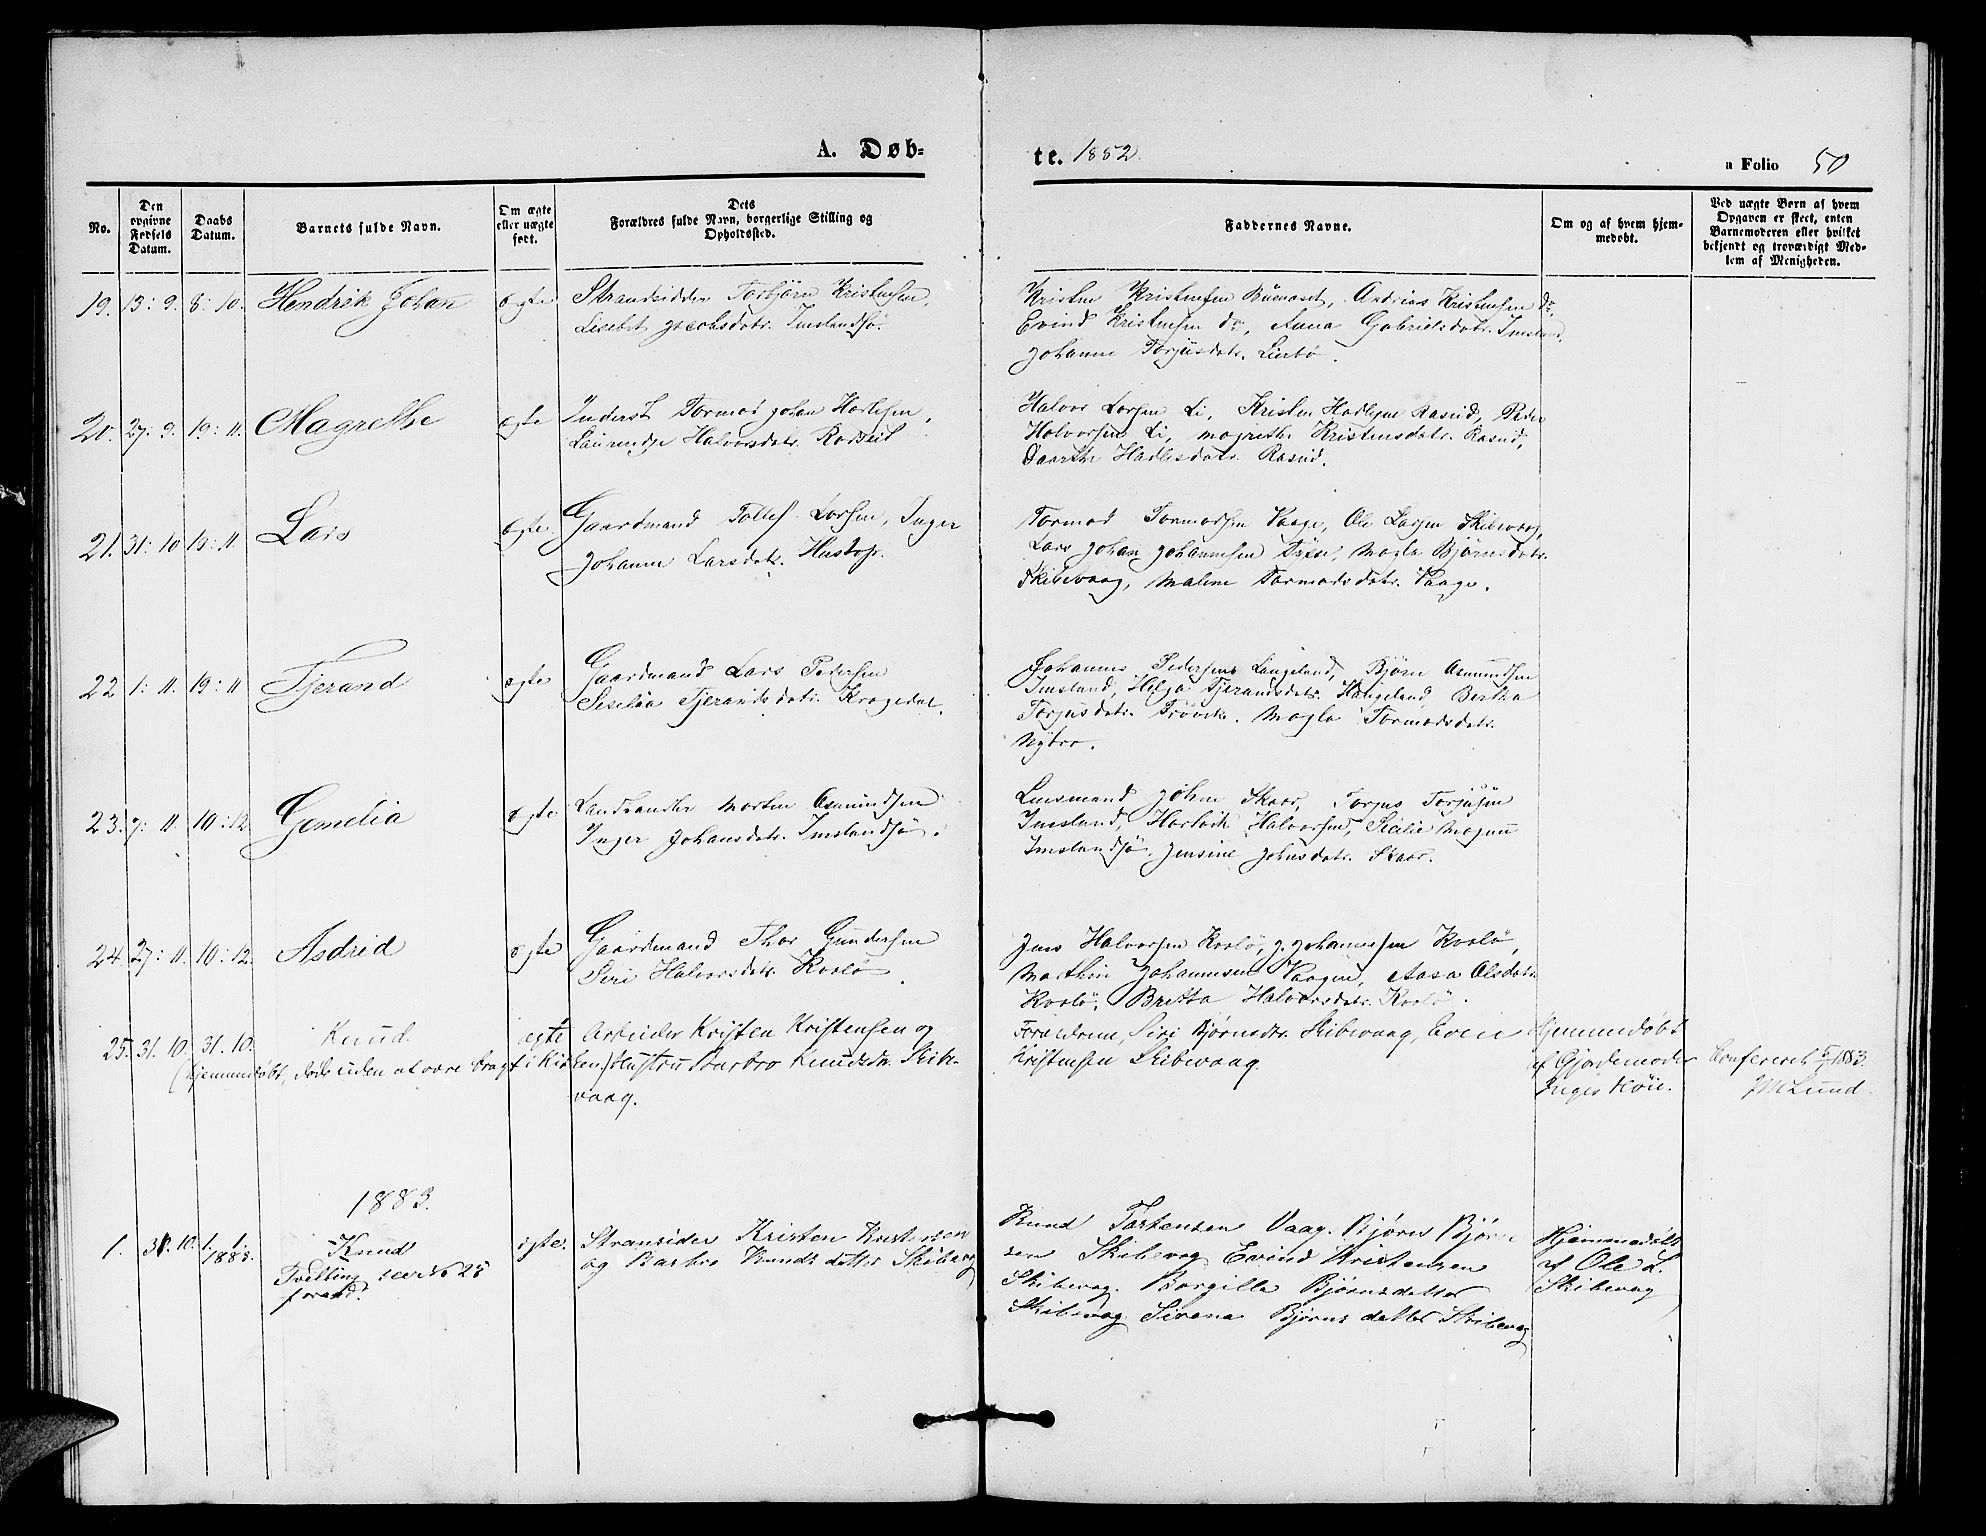 A. Døb-
te. 1882.
a Folio 50
No.
Den opgivne Fødsels Datum.
Daabs Datum.
Barnets fulde Navn.
Om ægte eller uægte født.
Dets Forældres fulde Navn, borgerlige Stilling og Opholdssted.
Faddernes Navne.
Om og af hvem hjemmedøbt.
Ved uægte Børn af hvem Opgaven er skeet, enten Barnemoderen eller hvilket bekjendt og troværdigt Medlem af Menigheden.
19. 13: 9. 8: 10. Hendrik Johan ægte Strandsidder Torbjörn Kristensen,
Lisebet Jacobsdatr. Imslandsjö.
Kristen Kristensen, Andrias Kristensen do,
Evind Kristensen do, Anna Gabrielsdatr. Imsland,
Johanne Torjusdatr.
20. 27: 9. 19: 11. Magrethe ægte Inderst Tormod Johan
Halvorsdatr.
Halvor Larsen Li, Kristen Rasud, Peder
Halvorsen Li, Magrethe Kristensdatr. Rasud,
Hadlesdatr. Rasud.
21. 31: 10 19: 11. Lars ægte Gaardmand Tollef Larsen, Inger
Johanne Larsdatr.
Tormod Tormodsen Vaage, Ole Larsen Skibevaag,
Lars Johan Johannesen Magla Björnsdatr.
Skibevaag, Maline Tormodsdatr. Vaage.
22 1: 11. 19: 11 Tjerand ægte Gaardmand Lars Pedersen
Siselia Tjerandsdatr. Kragedal.
Johannes Pedersen Langeland, Björn Asmundsen
Imsland, Helga Tjerandsdatr. Haugeland, Bertha
Torjusdatr. Magla Tormodsdatr.
Nybro.
23. 7: 11. 10: 12 Gemelia ægte Landhandler Morten Asmundsen
Inger Johansdatr. Imslandsjö.
Lensmand John Skaar, Torjus Torjusen
Imsland, Halvorsen, Sicilie
Imslandsjö. Jensine Johnsdatr. Skaar.
24. 27: 11. 10: 12. Asdrid ægte Gaardmand Thor Gundersen
Siri Halvorsdatr. Kvalö.
Jens Halvorsen Kvalö, J. Johannessen Kvalö,
Marthin Johannesen Vaagen, Aasa Olsdatr.
Kvalö, Bretta Halvorsdatr. Kvalö.
25. 31. 10. 31. 10. Knud. ægte Arbeider Kristen Kristensen og
(hjemmedøbt, døde uden at være bragt i Kirken.) Hustru Barbro Knudsdtr. Skibe-
vaag.
Forældrene, Siri Bjørnsdtr. Skibevaag, Even
Kristensen Skibevaag.
Hjemmedøbt
af Gjordemoder
Høie.
Confereret 1883.
Lund.
1883.
1. 31. 10. 1. 1. 1883. Knud
Tvilling se No 25
foran.
ægte. Stransider Kristen Kristensen
og Barbro Knudsdatter Skibevag
Knud Tostensen Vaag. Bjørn Bjørn-
sen Skibevag Evind Kristensen
Skibevag. Borgilla Bjørnsdatter
Skibevag Sirena Bjørns datter Skibevag
Hjemmedøbt
af Ole L.
Skibevag